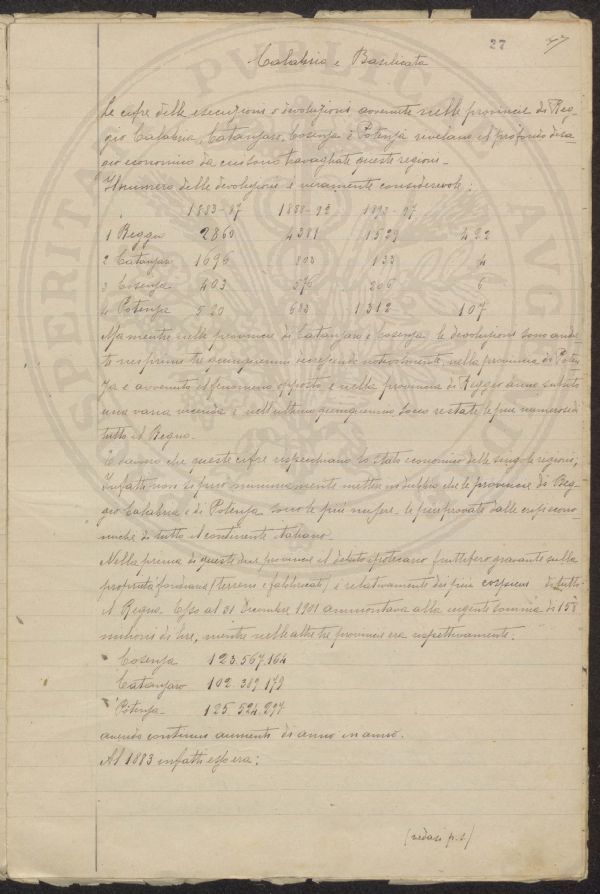 27
Calabria e Basilicata
Le cifre delle esecuzioni e devoluzioni avvenute nelle provincie di Reg-
gio Calabria, Catanzaro, Cosenza e Potenza rivelano il profondo disa-
gio economico da cui sono travagliate queste regioni.
Il numero delle devoluzioni è veramente considerevole:
1883-87 1888-92 1893-97
1 Reggio 2860 4381 1529 492
2 Catanzaro 1696 803 133 4
3 Cosenza 403 576 206 6
4 Potenza 520 683 1312 107
Ma mentre nelle provincie di Catanzaro e Cosenza le devoluzioni sono anda-
te nei primi tre quinquenni decrescendo notevolmente, nella provincia di Poten-
za è avvenuto il fenomeno opposto e nella provincia di Reggio hanno subito
una varia vicenda e nell'ultimo quinquennio sono restate le più numerose di
tutto il Regno.
È davvero che queste cifre rispecchiano lo stato economico delle singole regioni,
Infatti non si può menomamente mettere in dubbio che le provincie di Reg-
gio Calabria e di Potenza sono le più misere, le più provate dalle crisi econo-
miche di tutto il continente italiano.
Nella prima di queste due provincie il debito ipotecario fruttifero gravante sulla
proprietà fondiaria (terreni e fabbricati) è relativamente dei più cospicui di tutto
il Regno. Esso al 31 Dicembre 1901 ammontava alla ingente somma di 158
milioni di lire, mentre nelle altre tre provincie era rispettivamente:
Cosenza 123.567.164
Catanzaro 102.389.179
Potenza 125.524.297
avendo continui aumenti di anno in anno.
Al 1883 infatti esso era:
(vedasi p.s)